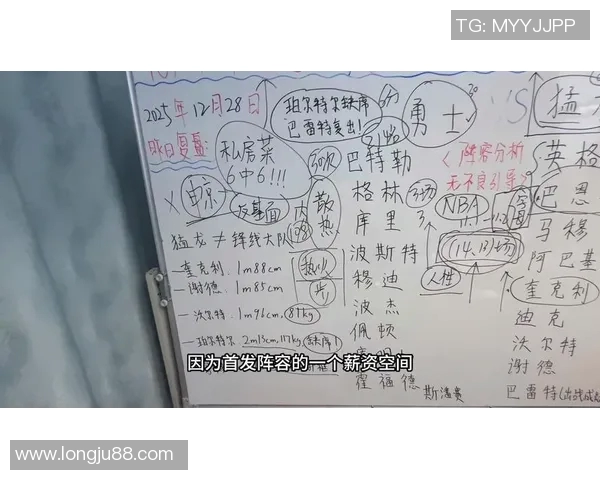 TG: MYYJJPP
2025年12月28日
昨日复盘:
私房菜
6中6!!!
珀尔特尔缺席
巴雷特复出!
勇士
VS
猛
<阵容分析
无不良引导>
反基面
散热
猛龙≠锋线大队
-奎克利:1m88cm
-谢德:1m85cm
-沃尔特:1m96cm,87kg
-珀尔特尔:2m13cm,117kg(缺席!)
热火
步
巴特勒
格林
库里
波斯特
穆迪
波杰
佩顿
霍福德
斯潘赛
NBA
(14,13)场
人性
英格
巴恩
马穆
阿巴基
奎克利
迪克
沃尔特
谢德
巴雷特
因为首发阵容的一个薪资空间
www.longju88.com